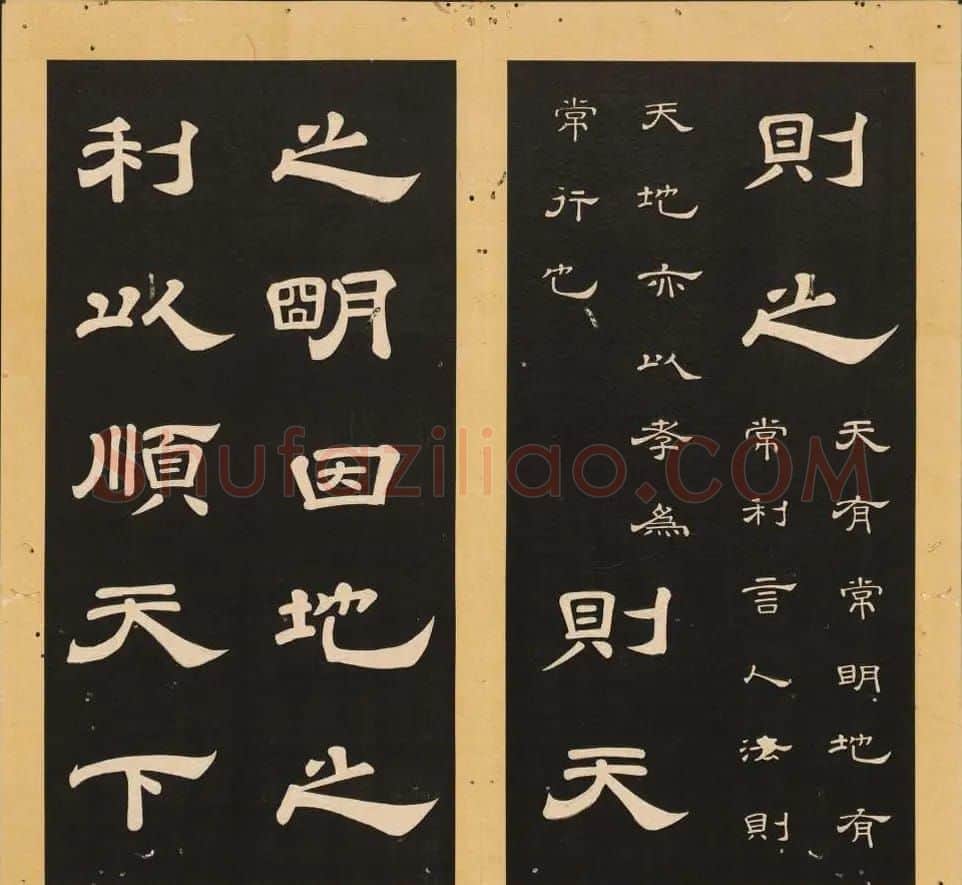 則之
天有常眀地有
常利言人法則
天地亦以孝為
常行也
則天
之朙因地之
利以順天下
Shufaziliao.COM